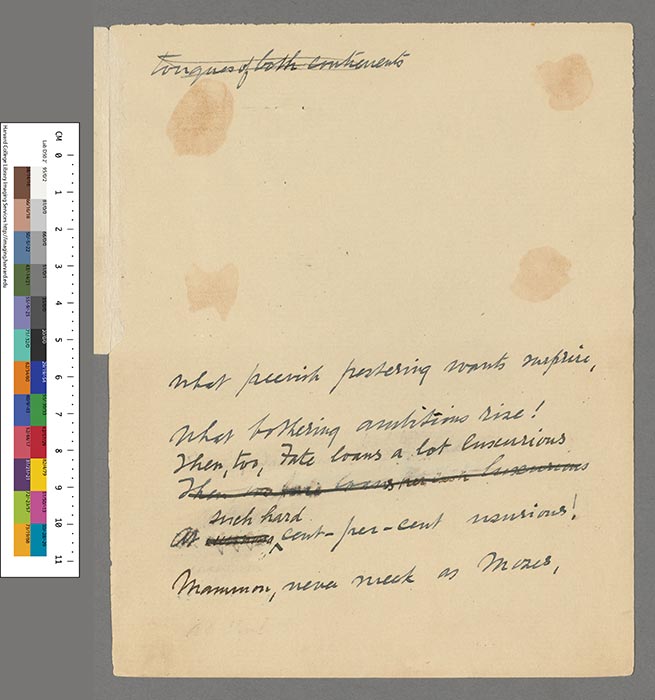 Tongues of both continents
What peevish pestering wants surprise,
What bothering ambitions rise!
Then, too, Fate loans a lot luxurious
Then too Fate loans her luxurious
such hard
At cent-per-cent usurious!
Mammon, never meek as Moses,
CM 0 1 2 3 4 5 6 7 8 9 10 11
Harvard College Library Imaging Services http://imaging.harvard.edu